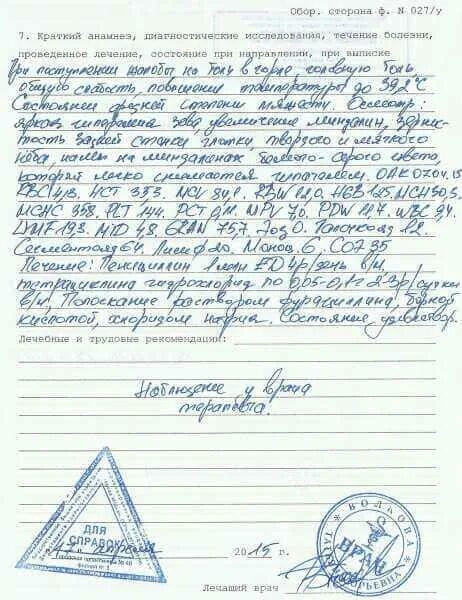 Обор. сторона ф. N 027/у
7. Краткий анамнез, диагностические исследования, течение болезни,
проведенное лечение, состояние при направлении, при выписке
При поступлении жалобы на боль в горле, головную боль
общую слабость, повышение температуры до 39,2°С
Состояние средней степени тяжести. Объект.:
яркая гиперемия зева увеличение миндалин, зернис-
тость задней стенки глотки, твердого и мягкого
нёба, налет на миндалинах белого-серого цвета,
который легко снимается шпателем. ОАК 07.04.15
RBC 4,18. HCT 35,3. MCV 84,1. RDW 12,0. HGB 125. MCH 30,3.
MCHC 358. PLT 144. PCT 0,11. MPV 7,0. PDW 12,7. WBC 9,4.
LYMF 19,3. MID 4,8. GRAN 75,7. Эоз 0. Палочкояд 12.
Сегментояд 64. Лимф 20. Моноц. 6. СОЭ 35
Лечение: Пенициллин 1 млн ЕД 4р/день в/м
тетрациклина гидрохлорид по 0,05-0,1 г 2-3р/сутки
в/м, Полоскание раствором фурациллина, борной
кислотой, хлоридом натрия. Состояние удовлетвор.
Лечебные и трудовые рекомендации:
Наблюдение у врача
терапевта.
ДЛЯ
СПРАВОК
апреля 2015 г.
Лечащий врач
ВОЛКОВА
ВРАЧ